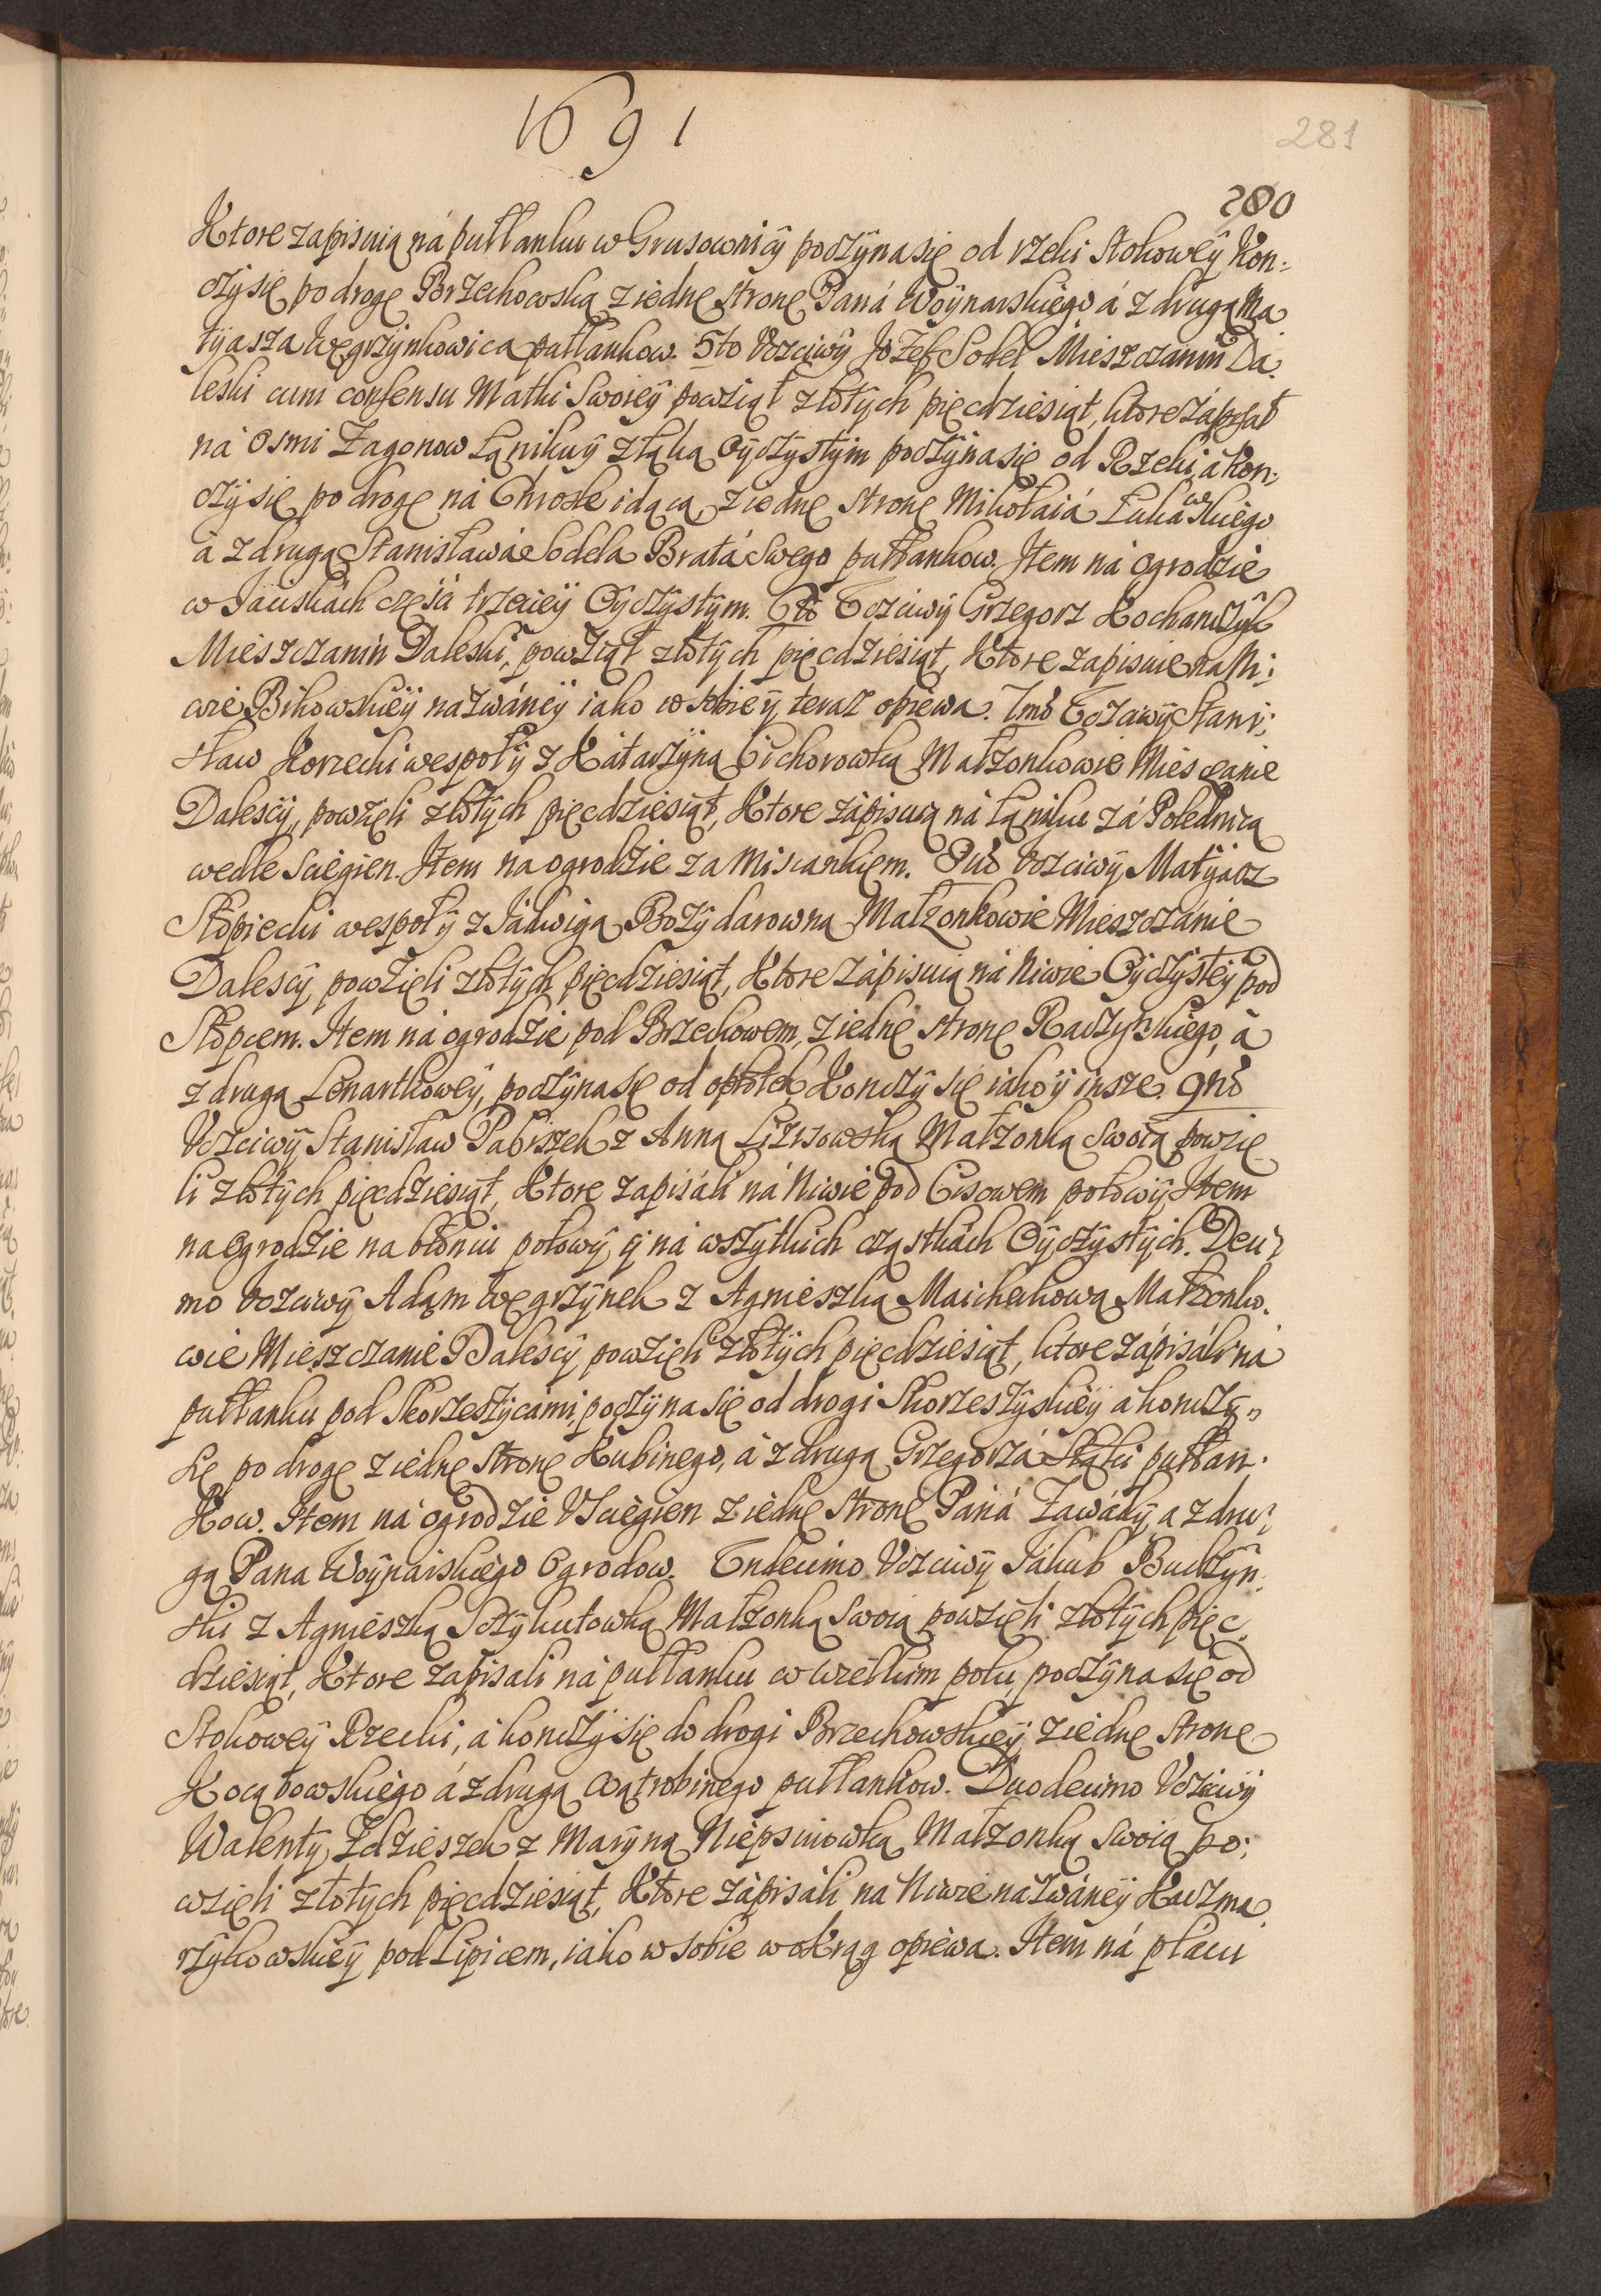 1691
281
280
Ktore zapisuią ná pułłanku w Grusownicÿ poczÿna się od rzeki Stokowēÿ Kon:
czÿ się po drogę Brzechowską z iednę stronę Páná Woÿnarskiego á z drugą Ma
tÿasza Węgrzÿnkowica pułłankow. 5to Vczciwÿ Jozef Sodel Mieszczanin Da.
leski cum consensu Matki Swoieÿ powziął złotÿch pięcdziesiąt, ktore zápisał
ná osmi Zagonow Łanikuÿ z łąką Oÿczÿstÿm poczÿna się od Rzeki á kon:
czÿ się po drogę ná Chroste idącą, z iednę stronę Mikołaiá Łukawskiego
á z drugą Stanisławá Sodela Bratá Swego pułłankow. Item ná ogrodzie
w Jáuskách częśći trzeciēÿ Oÿczÿstÿm. 6to Vczciwÿ Grzegorz Kochanczÿk
Mieszczanin Daleski, powziął złotÿch pięcdziesiąt, Ktore zapisuie na Ni:
wie Bikowskiēÿ názwánēÿ iako w sobie ÿ teraz opiewa. 7mo Vczciwÿ Stani:
sław Korzecki wespoły z Kátarzÿną Cichorowką Małzonkowie Miesczanie
Dalescÿ, powzięli złotÿch pięcdziesiąt, Ktore zápisuią ná Łaniku zá Polednicą
wedle Sciegien. Item na ogrodzie za Miscankiem. 8uo Vczciwÿ Matÿasz
Słopiecki wespołÿ z Jadwigą Bozÿdarowną Małzonkowie Mieszczánie
Dalescÿ powzięli złotÿch pięcdziesiąt, Ktore zápisuią ná Niwie Oÿczÿstēÿ pod
Słopcem. Item ná ogrodzie pod Brzechowem, z iednę stronę Raczÿskiego, á
z drugą Lenartkowēÿ, poczÿna się od opłotek Konczÿ się iako ÿ insze. 9no
Vczciwÿ Stanisław Pabiszek z Anną Lizisowską Małzonką Swoią powzię
li złotÿch pięcdziesiąt, Ktore zapisáli ná Niwie pod Cisowem połowÿ Item
na Ogrodzie na błoniu połowÿ, ÿ ná wszÿtkich cząstkách Oÿczÿstÿch. Deci:
mo Vczciwÿ Adam Węgrzÿnek z Agnieszką Maichekową Małzonko.
wie Mieszczanie Dalescÿ powzięli złotÿch pięcdziesiąt, ktore zápisáli ná
pułłanku pod Skorzeszÿcámi, poczÿna się od drogi Skorzeszÿskiēÿ á konczÿ
się po drogę z iednę stronę Kubinego, á z drugą Grzegorzá Skáłki pułłan:
Kow. Item ná ogrodzie V Sciegien z iednę stronę Páná Zawádÿ, a z dru:
gą Pana Woÿnarskiego Ogrodow. Vndecimo Vczciwÿ Jákub Budzÿn:
ski z Agnieszką Sczÿkutowką Małzonką Swoią powzięli złotÿch pięc.
dziesiąt, Ktore zapisali ná pułłanku w wielkim polu, poczÿna się od
Stokowēÿ Rzeki, á konczÿ się do drogi Brzechowskiēÿ, z iednę stronę
Kocąbowskiego á z drugą Wątrobinego pułłankow. Duodecimo Vczciwÿ
Walentÿ Zdzieszek z Marÿną Niepsuiowką Małzonką Swoią po:
wzięli złotÿch pięcdziesiąt, Ktore zápisáli na Niwie názwánēÿ Kaczma
rzÿkowskiēÿ pod Lipicem, iako w sobie w okrąg opiewa. Item ná płacu